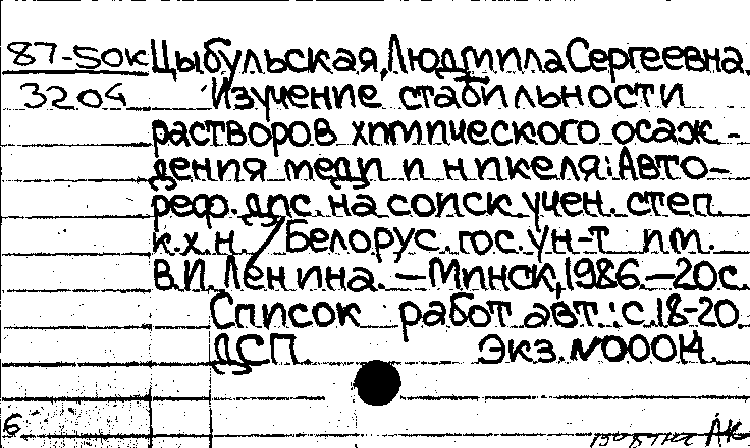 87-50к Цыбульская, Людмила Сергеевна.
3204 Изучение стабильности
растворов химического осаж-
дения меди и никеля: Авто-
реф. дис. на соиск. учен. степ.
к.х.н. / Белорус. гос. ун-т им.
В.И. Ленина. — Минск, 1986. — 20 с.
Список работ авт.: с. 18-20.
ДСП. Экз. №00014.
6